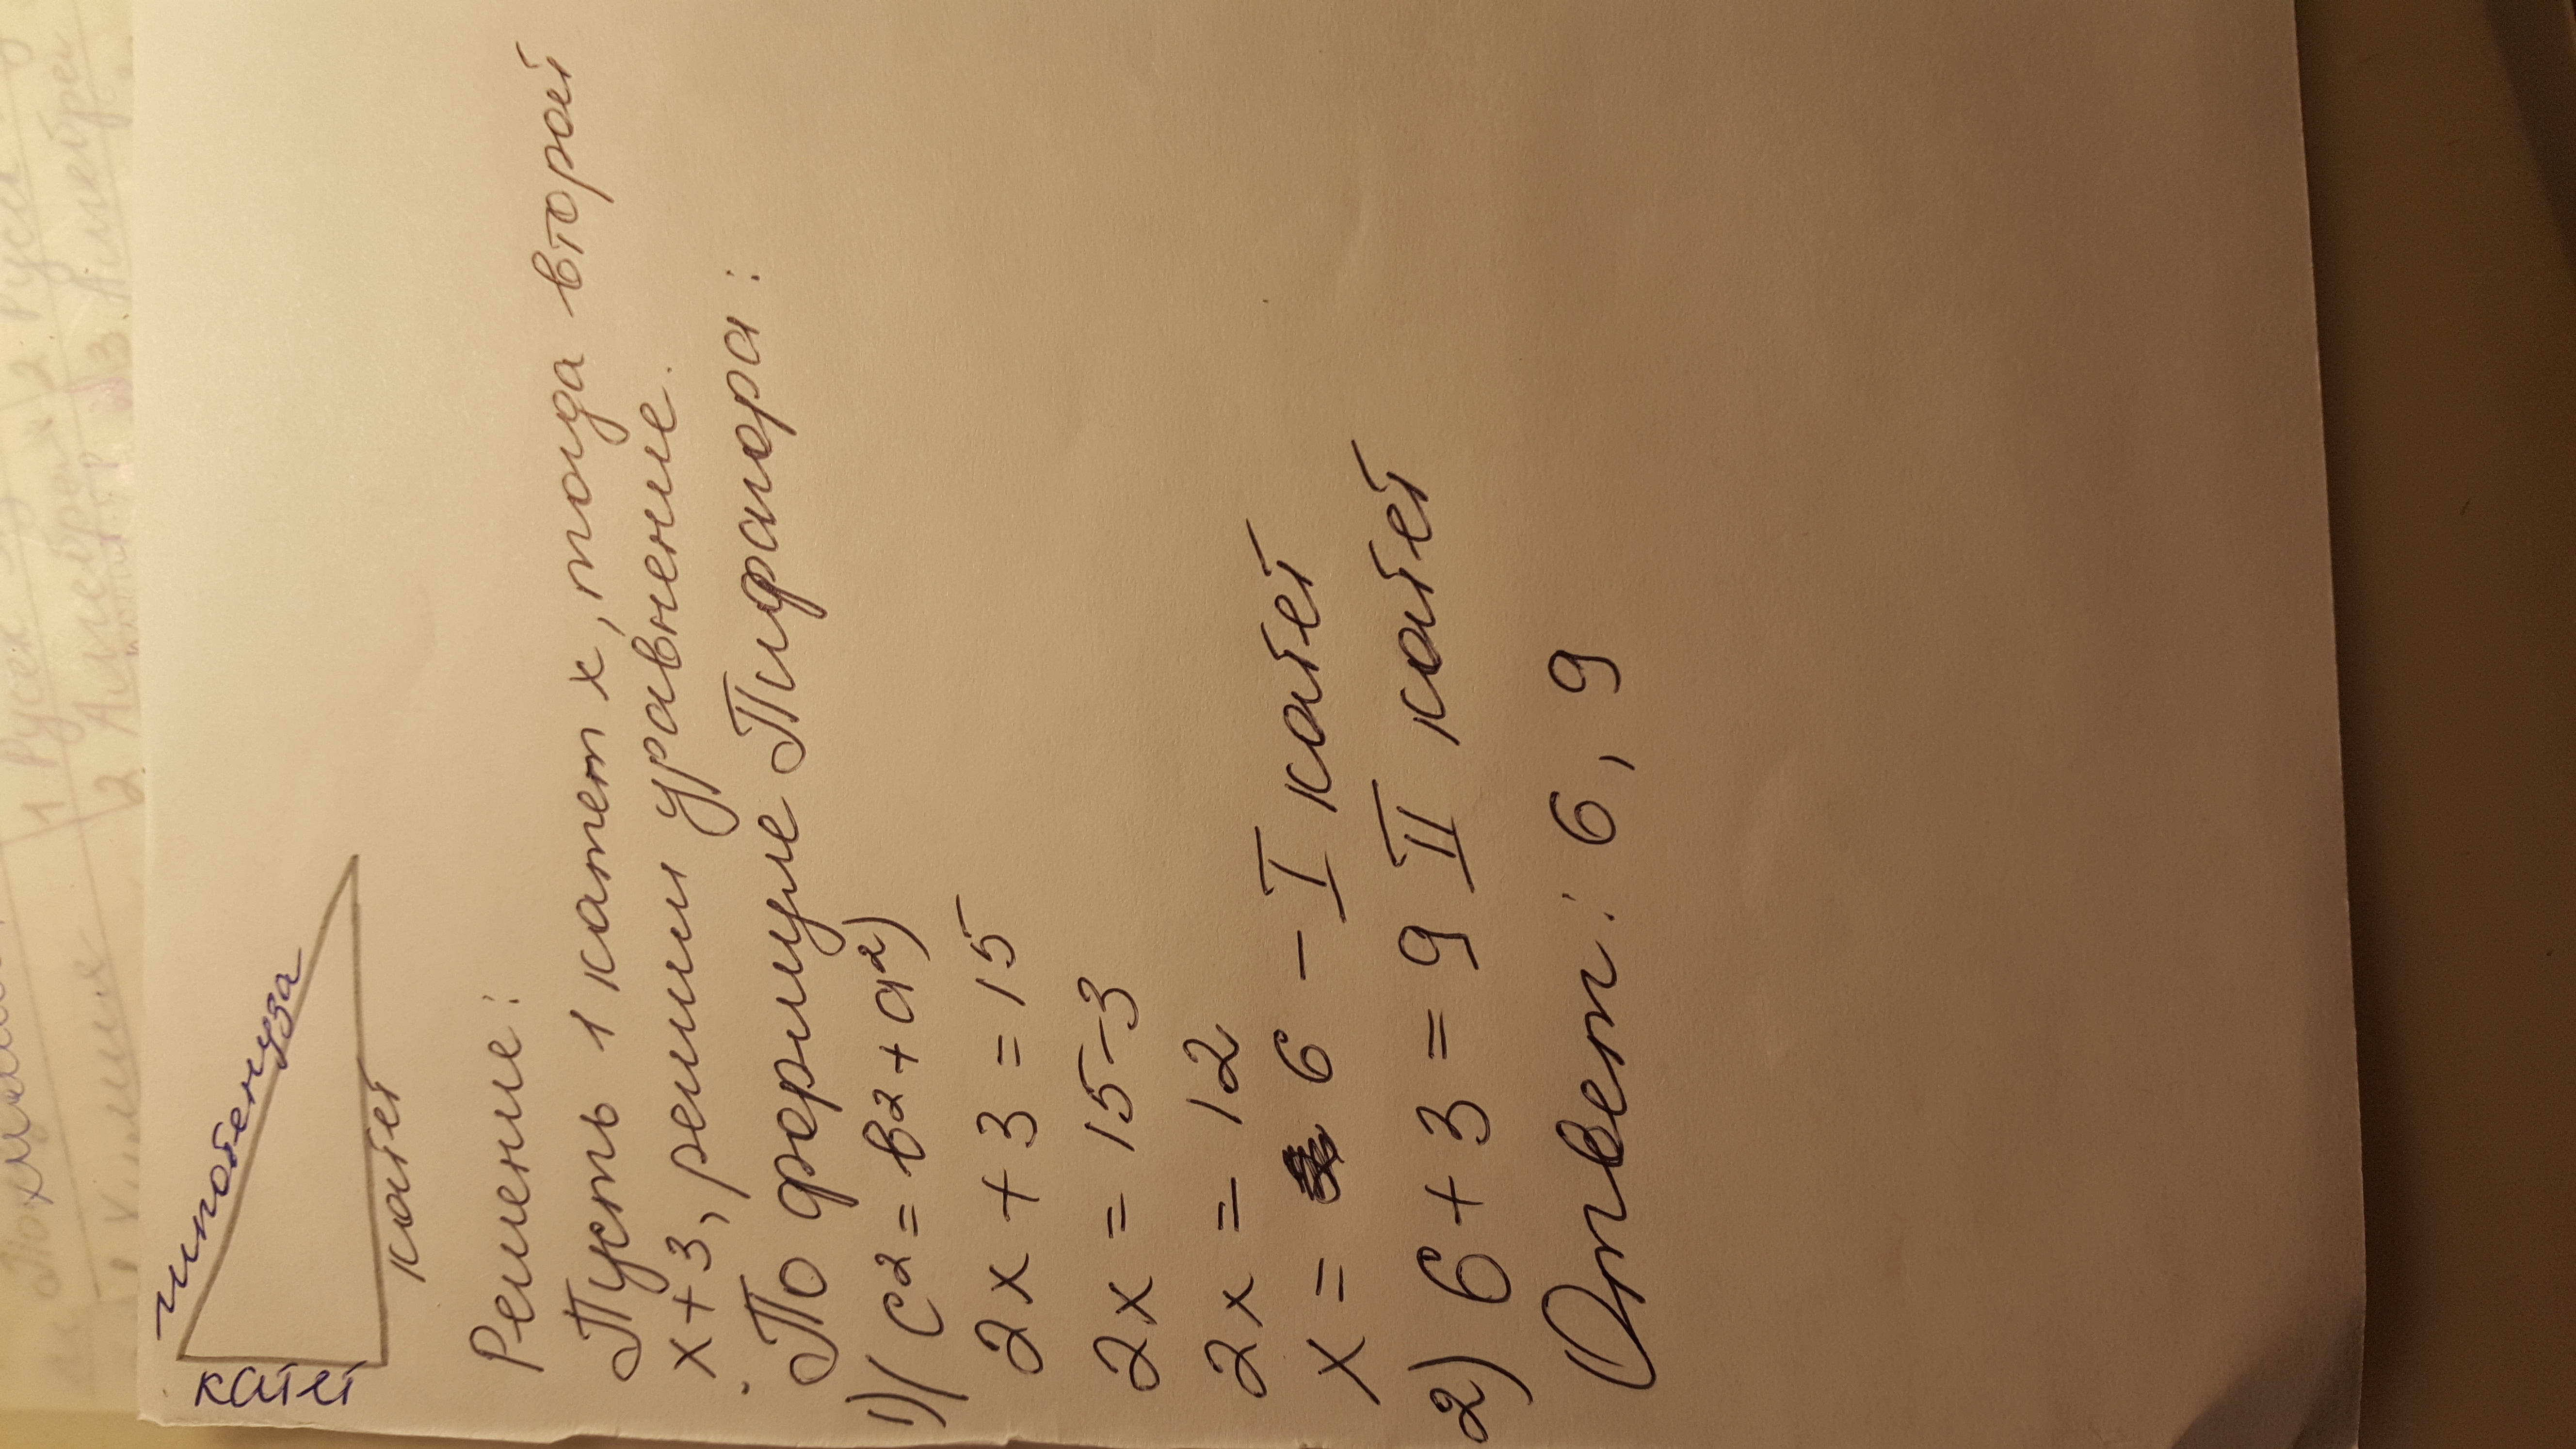 гипотенуза
катет
катет
Решение:
Пусть 1 катет x, тогда второй
x+3, реши уравнение.
По формуле Пифагора:
1)(c² = b² + a²)
2x + 3 = 15
2x = 15-3
2x = 12
x = 6 - I катет
2) 6 + 3 = 9 II катет
Ответ: 6, 9